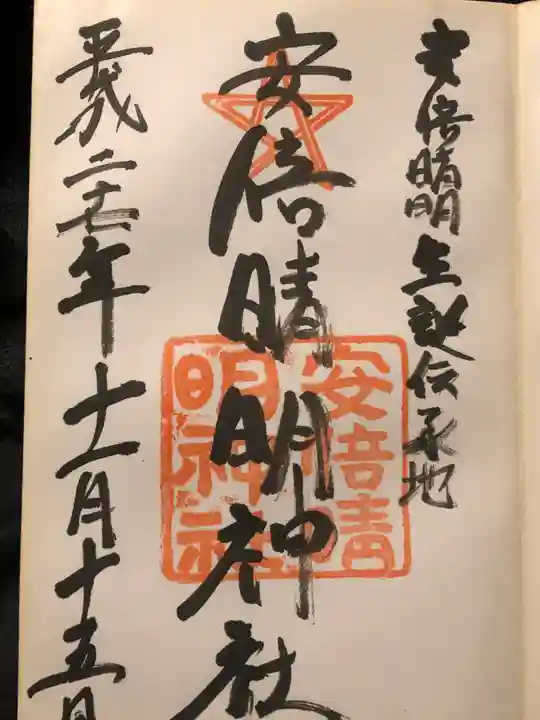 安倍晴明生誕伝承地
安倍晴明神社
安倍晴
明神社
平成二十七年十一月十五日